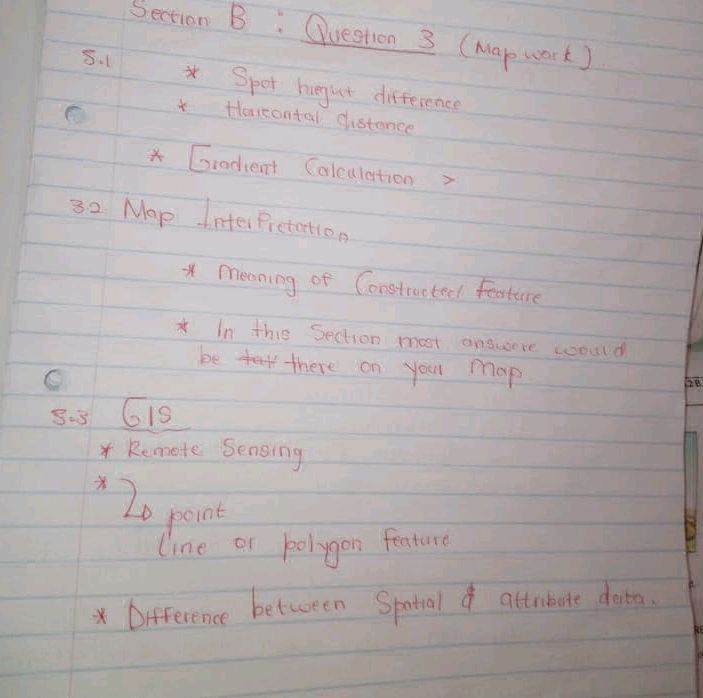 Section B : Question 3 (Map work)
3.1 * Spot hieght difference
* Horicontal distance
* Gradient Calculation >
3.2 Map Interpretation
* Meaning of Constructed feature
* In this Section most answere would
be there on your Map
3.3 GIS
* Remote Sensing
* 2D point
Line or polygon feature
* Difference between Spatial & attribute data.
2B